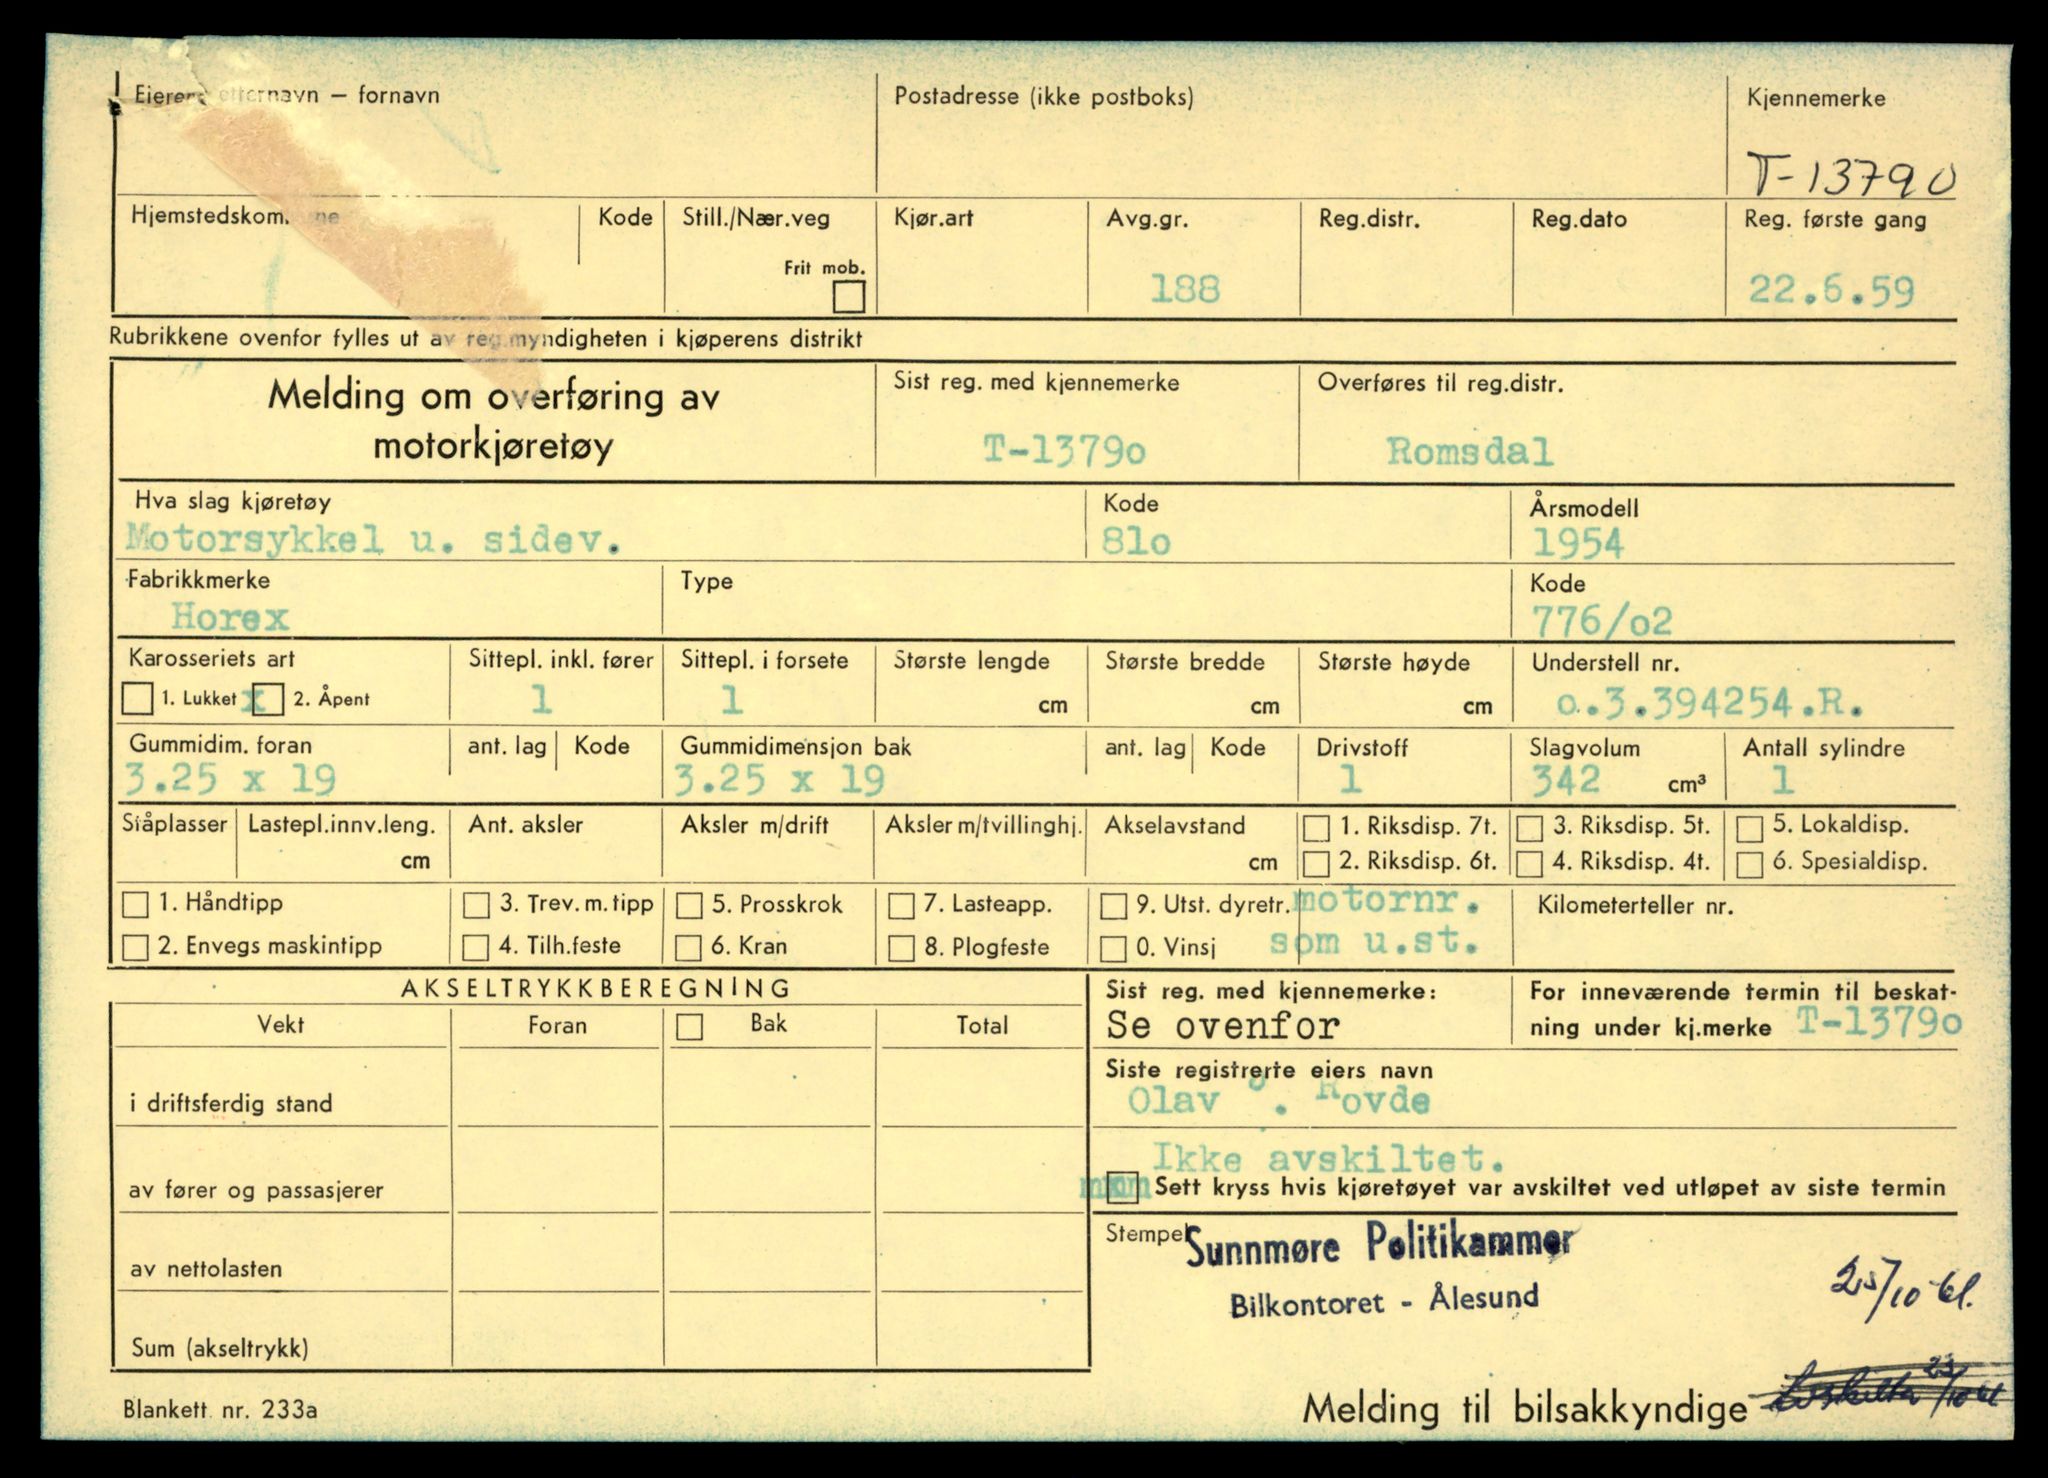 Eierens etternavn – fornavn
Postadresse (ikke postboks)
Kjennemerke
T-13790
Hjemstedskommune
Kode
Still./Nær.veg
Frit mob.
Kjør.art
Avg.gr.
188
Reg.distr.
Reg.dato
Reg. første gang
22.6.59
Rubrikkene ovenfor fylles ut av reg.myndigheten i kjøperens distrikt
Melding om overføring av
motorkjøretøy
Sist reg. med kjennemerke
T-1379o
Overføres til reg.distr.
Romsdal
Hva slag kjøretøy
Motorsykkel u. sidev.
Kode
81o
Årsmodell
1954
Fabrikkmerke
Horex
Type
Kode
776/o2
Karosseriets art
1. Lukket x 2. Åpent
Sittepl. inkl. fører
1
Sittepl. i forsete
1
Største lengde
cm
Største bredde
cm
Største høyde
cm
Understell nr.
o.3.394254.R.
Gummidim. foran
3.25 x 19
ant. lag
Kode
Gummidimensjon bak
3.25 x 19
ant. lag
Kode
Drivstoff
1
Slagvolum
342 cm³
Antall sylindre
1
Ståplasser
Lastepl.innv.leng.
cm
Ant. aksler
Aksler m/drift
Aksler m/tvillinghj.
Akselavstand
cm
1. Riksdisp. 7t.
3. Riksdisp. 5t.
5. Lokaldisp.
2. Riksdisp. 6t.
4. Riksdisp. 4t.
6. Spesialdisp.
1. Håndtipp
3. Trev. m. tipp
5. Prosskrok
7. Lasteapp.
9. Utst. dyretr.
motornr.
Kilometerteller nr.
2. Envegs maskintipp
4. Tilh.feste
6. Kran
8. Plogfeste
0. Vinsj
som u.st.
AKSELTRYKKBEREGNING
Vekt
Foran
Bak
Total
i driftsferdig stand
av fører og passasjerer
av nettolasten
Sum (akseltrykk)
Sist reg. med kjennemerke:
Se ovenfor
For inneværende termin til beskat-
ning under kj.merke T-1379o
Siste registrerte eiers navn
Olav O. Rovde
Ikke avskiltet.
Sett kryss hvis kjøretøyet var avskiltet ved utløpet av siste termin
Stempel
Sunnmøre Politikammer
Bilkontoret - Ålesund
25/10-61.
Blankett nr. 233a
Melding til bilsakkyndige